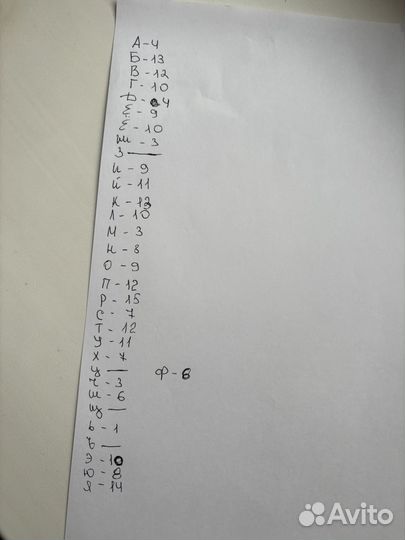 А - 4
Б - 13
В - 12
Г - 10
Д - 4
Е - 9
Ё - 10
Ж - 3
З —
И - 9
Й - 11
К - 12
Л - 10
М - 3
Н - 8
О - 9
П - 12
Р - 15
С - 7
Т - 12
У - 11
Х - 7
Ц —
Ч - 3
Ф - 6
Ш - 6
Щ —
Ь - 1
Ъ —
Э - 10
Ю - 8
Я - 14
Avito